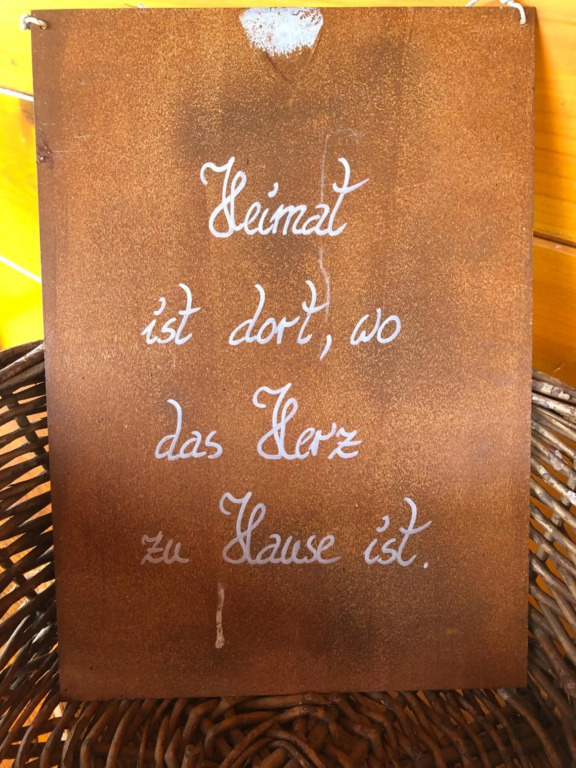 Heimat
ist dort, wo
das Herz
zu Hause ist.